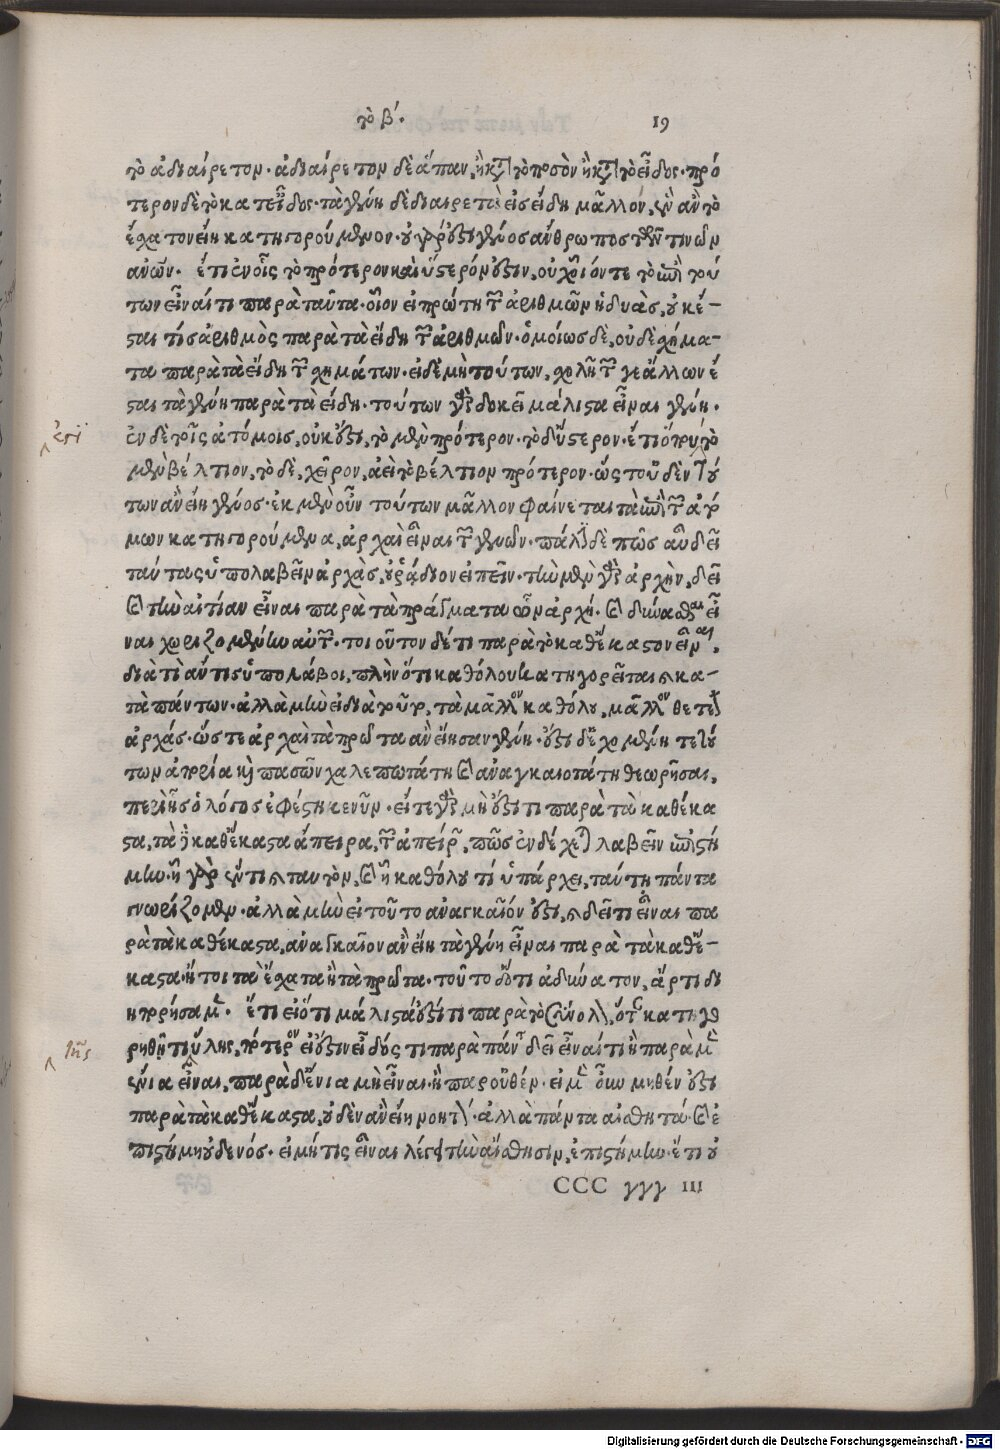 τὸ β´.
19
τὸ ἀδιαίρετον. ἀδιαίρετον δὲ ἅπαν, ἢ κατὰ τὸ ποσὸν ἢ κατὰ τὸ εἶδος. πρό
τερον δὲ τὸ κατ' εἶδος. τὰ γένη δὲ διαιρετὰ εἰς εἴδη μᾶλλον, ἓν ἂν τὸ
ἔσχατον εἴη κατηγορούμενον. οὐ γάρ ἐστι γένος ἄνθρωπος τῶν τινῶν
ἀνων. ἔτι ἐν οἷς τὸ πρότερον καὶ ὕστερόν ἐστιν, οὐχ οἷόν τε τὸ ἐπὶ τού
των εἶναί τι παρὰ ταῦτα. οἷον εἰ πρώτη τῶν ἀριθμῶν ἡ δυὰς, οὐκ ἔ-
σται τίς ἀριθμὸς παρὰ τὰ εἴδη τῶν ἀριθμῶν. ὁμοίως δὲ, οὐδὲ σχήμα-
τα παρὰ τὰ εἴδη τῶν σχημάτων. εἰ δὲ μὴ τούτων, σχολῇ τῶν γε ἄλλων ἔ
σται τὰ γένη παρὰ τὰ εἴδη. τούτων γὰρ δοκεῖ μάλιστα εἶναι γένη.
ἐν δὲ τοῖς ἀτόμοις, οὐκ ἔστι, τὸ μὲν πρότερον. τὸ δ' ὕστερον. ἔτι ὅπου τὸ
μὲν βέλτιον, τὸ δὲ, χεῖρον, ἀεὶ τὸ βέλτιον πρότερον. ὥστ' οὐδὲν τού
των ἂν εἴη γένος. ἐκ μὲν οὖν τούτων μᾶλλον φαίνεται τὰ ἐπὶ τῶν ἀτό
μων κατηγορούμενα, ἀρχαὶ εἶναι τῶν γενῶν. πάλιν δὲ πῶς αὖ δεῖ
ταύτας ὑπολαβεῖν ἀρχὰς, οὐ ῥάδιον εἰπεῖν. τὴν μὲν γὰρ ἀρχὴν, δεῖ
καὶ τὴν αἰτίαν εἶναι παρὰ τὰ πράγματα ὧν ἀρχή. καὶ δύνασθαι εἶ
ναι χωριζομένην αὐτῶν. τοιοῦτον δέ τι παρὰ τὸ καθ' ἕκαστον εἶναι,
διὰ τί ἄν τις ὑπολάβοι, πλὴν ὅτι καθόλου κατηγορεῖται καὶ κα-
τὰ πάντων. ἀλλὰ μὴν εἰ διὰ τοῦτο, τὰ μᾶλλον καθόλου, μᾶλλον θετέον
ἀρχάς. ὥστε ἀρχαὶ τὰ πρῶτα ἂν εἴησαν γένη. ἔστι δ' ἐχομένη τε τού
των ἀπορία καὶ πασῶν χαλεπωτάτη καὶ ἀναγκαιοτάτη θεωρῆσαι,
περὶ ἧς ὁ λόγος ἐφέστηκε νῦν. εἴτε γὰρ μὴ ἔστι τι παρὰ τὰ καθέκα
στα, τὰ δὲ καθ' ἕκαστα ἄπειρα, τῶν ἀπείρων, πῶς ἐνδέχεται λαβεῖν ἐπιστή
μην. ἢ γὰρ ἕν τι καὶ ταυτὸν, καὶ ἢ καθόλου τί ὑπάρχει, ταύτῃ πάντα
γνωρίζομεν. ἀλλὰ μὴν εἰ τοῦτο ἀναγκαῖόν ἐστι, καὶ δεῖ τι εἶναι πα
ρὰ τὰ καθέκαστα, ἀναγκαῖον ἂν εἴη τὰ γένη εἶναι παρὰ τὰ καθ' ἕ-
καστα. ἤτοι τὰ ἔσχατα ἢ τὰ πρῶτα. τοῦτο δ' ὅτι ἀδύνατον, ἄρτι δι
ηπορήσαμεν. ἔτι εἰ ὅτι μάλιστά ἐστί τι παρὰ τὸ σύνολον, ὅταν κατηγο
ρηθῇ τι ὕλης, πότερον εἰ ἔστιν εἶδός τι παρὰ πάντα δεῖ εἶναί τι ἢ παρὰ μὲν
ἔνια εἶναι, παρὰ δ' ἔνια μὴ εἶναι. ἢ παρ' οὐθέν. εἰ μὲν οὖν μηθέν ἐστι
παρὰ τὰ καθ' ἕκαστα, οὐδὲν ἂν εἴη νοητόν. ἀλλὰ πάντα αἰσθητά. καὶ ἐ
πιστήμη οὐδενός. εἰ μήτις εἶναι λέγει τὴν αἴσθησιν, ἐπιστήμην. ἔτι οὐ
CCC γγγ III
ἐπὶ
τῆς
Digitalisierung gefördert durch die Deutsche Forschungsgemeinschaft - DFG